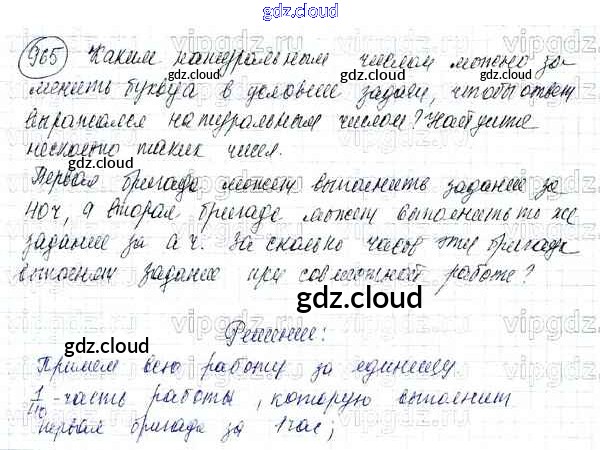 gdz.cloud
965 Каким натуральным числом можно за-
менить букву а в условие задачи, чтобы ответ
выражался натуральным числом? Найдите
несколько таких чисел.
Первая бригада может выполнить задание за
40ч, а вторая бригада может выполнить то же
задание за а ч. За сколько часов эти бригады
выполнят задание при совместной работе?
gdz.cloud
Решение:
Примем всю работу за единицу.
1/40 - часть работы, которую выполнит
первая бригада за 1 час;